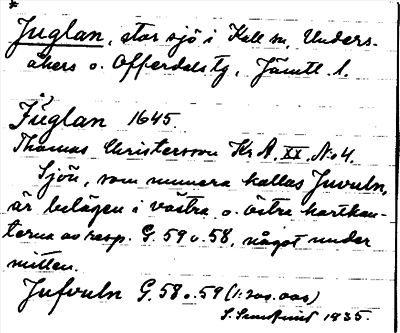 *
Juglan, stor sjö i Kall sn, Unders-
åkers o. Offerdals tg, Jämtl. l.
Jüglan 1645.
Thomas Christersson Kr A. XX. No 4.
Sjön, som numera kallas Juvuln,
är belägen i västra o. östra kartkan-
terna av resp. G. 59 o. 58, något under
mitten.
Jufvuln G. 58 o. 59 (1:200.000)
1935.